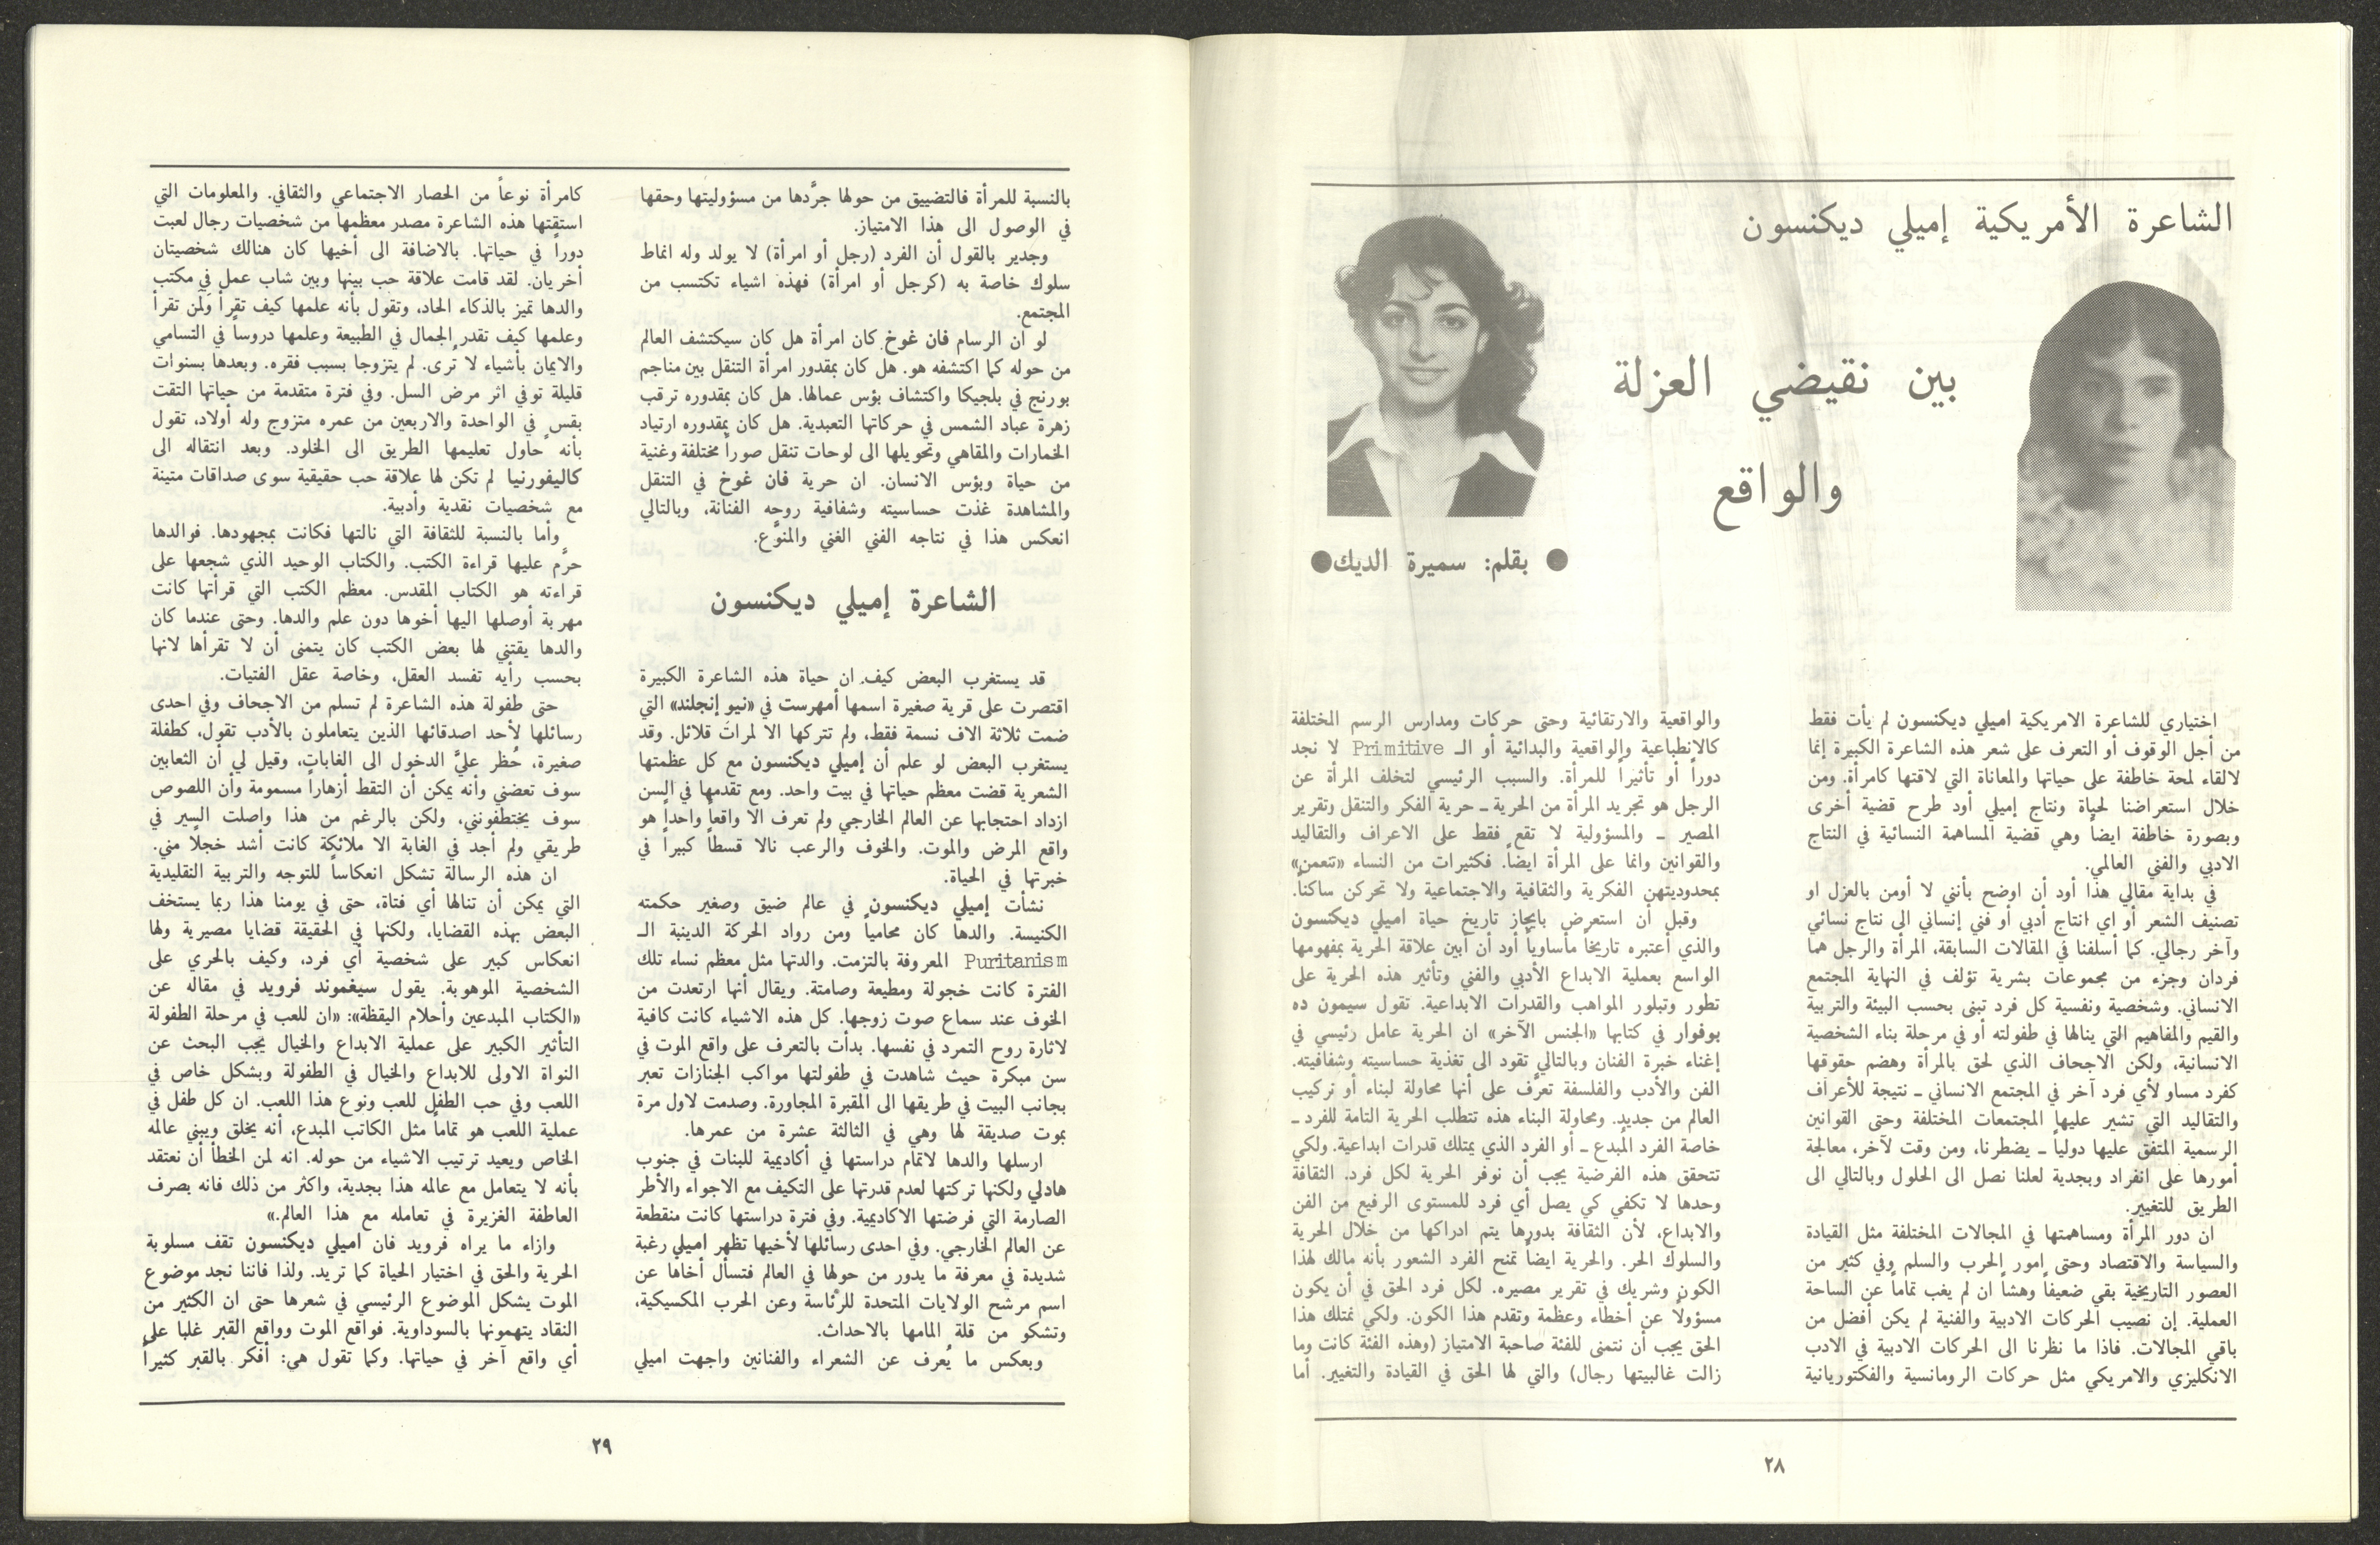 الشاعرة الأمريكية إميلي ديكنسون
بين نقيضي العزلة
والواقع
● بقلم: سميرة الديك●
اختياري للشاعرة الامريكية اميلي ديكنسون لم يأت فقط
من أجل الوقوف أو التعرف على شعر هذه الشاعرة الكبيرة إنما
لالقاء لمحة خاطفة على حياتها والمعاناة التي لاقتها كامرأة. ومن
خلال استعراضنا لحياة ونتاج إميلي أود طرح قضية أخرى
وبصورة خاطفة ايضاً وهي قضية المساهمة النسائية في النتاج
الادبي والفني العالمي.
في بداية مقالي هذا أود أن اوضح بأنني لا أومن بالعزل او
تصنيف الشعر أو اي انتاج أدبي أو فني إنساني الى نتاج نسائي
وآخر رجالي. كما أسلفنا في المقالات السابقة، المرأة والرجل هما
فردان وجزء من مجموعات بشرية تؤلف في النهاية المجتمع
الانساني. وشخصية ونفسية كل فرد تبنى بحسب البيئة والتربية
والقيم والمفاهيم التي ينالها في طفولته أو في مرحلة بناء الشخصية
الانسانية، ولكن الاجحاف الذي لحق بالمرأة وهضم حقوقها
كفرد مساو لأي فرد آخر في المجتمع الانساني ـ نتيجة للأعراف
والتقاليد التي تشير عليها المجتمعات المختلفة وحتى القوانين
الرسمية المتفق عليها دولياً ـ يضطرنا، ومن وقت لآخر، معالجة
أمورها على انفراد وبجدية لعلنا نصل الى الحلول وبالتالي الى
الطريق للتغيير.
ان دور المرأة ومساهمتها في المجالات المختلفة مثل القيادة
والسياسة والاقتصاد وحتى امور الحرب والسلم وفي كثير من
العصور التاريخية بقي ضعيفاً وهشاً ان لم يغب تماماً عن الساحة
العملية. إن نصيب الحركات الادبية والفنية لم يكن أفضل من
باقي المجالات. فاذا ما نظرنا الى الحركات الادبية في الادب
الانكليزي والامريكي مثل حركات الرومانسية والفكتوريانية
والواقعية والارتقائية وحتى حركات ومدارس الرسم المختلفة
كالانطباعية والواقعية والبدائية أو الـ Primitive لا نجد
دوراً أو تأثيراً للمرأة. والسبب الرئيسي لتخلف المرأة عن
الرجل هو تجريد المرأة من الحرية ـ حرية الفكر والتنقل وتقرير
المصير ـ والمسؤولية لا تقع فقط على الاعراف والتقاليد
والقوانين وانما على المرأة ايضاً. فكثيرات من النساء «تنعمن»
بمحدوديتهن الفكرية والثقافية والاجتماعية ولا تحركن ساكناً.
وقبل أن استعرض بايجاز تاريخ حياة اميلي ديكنسون
والذي أعتبره تاريخاً مأساوياً أود أن أبين علاقة الحرية بمفهومها
الواسع بعملية الابداع الأدبي والفني وتأثير هذه الحرية على
تطور وتبلور المواهب والقدرات الابداعية. تقول سيمون ده
بوفوار في كتابها «الجنس الآخر» ان الحرية عامل رئيسي في
إغناء خبرة الفنان وبالتالي تقود الى تغذية حساسيته وشفافيته.
الفن والأدب والفلسفة تعرَّف على أنها محاولة لبناء أو تركيب
العالم من جديد. ومحاولة البناء هذه تتطلب الحرية التامة للفرد ـ
خاصة الفرد المُبدع ـ أو الفرد الذي يمتلك قدرات ابداعية. ولكي
تتحقق هذه الفرضية يجب أن نوفر الحرية لكل فرد. الثقافة
وحدها لا تكفي كي يصل أي فرد للمستوى الرفيع من الفن
والابداع، لأن الثقافة بدورها يتم ادراكها من خلال الحرية
والسلوك الحر. والحرية ايضاً تمنح الفرد الشعور بأنه مالك لهذا
الكون وشريك في تقرير مصيره. لكل فرد الحق في أن يكون
مسؤولاً عن أخطاء وعظمة وتقدم هذا الكون. ولكي نمتلك هذا
الحق يجب أن ننتمي للفئة صاحبة الامتياز (وهذه الفئة كانت وما
زالت غالبيتها رجال) والتي لها الحق في القيادة والتغيير. أما
٢٨
بالنسبة للمرأة فالتضييق من حولها جرَّدها من مسؤوليتها وحقها
في الوصول الى هذا الامتياز.
وجدير بالقول أن الفرد (رجل أو امرأة) لا يولد وله انماط
سلوك خاصة به (كرجل أو امرأة) فهذه اشياء تكتسب من
المجتمع.
لو ان الرسام فان غوخ كان امرأة هل كان سيكتشف العالم
من حوله كما اكتشفه هو. هل كان بمقدور امرأة التنقل بين مناجم
بورنج في بلجيكا واكتشاف بؤس عمالها. هل كان بمقدوره ترقب
زهرة عباد الشمس في حركاتها التعبدية. هل كان بمقدوره ارتياد
الخمارات والمقاهي وتحويلها الى لوحات تنقل صوراً مختلفة وغنية
من حياة وبؤس الانسان. ان حرية فان غوخ في التنقل
والمشاهدة غذت حساسيته وشفافية روحه الفنانة، وبالتالي
انعكس هذا في نتاجه الفني الغني والمنوَّع.
الشاعرة إميلي ديكنسون
قد يستغرب البعض كيف ان حياة هذه الشاعرة الكبيرة
اقتصرت على قرية صغيرة اسمها أمهرست في «نيو إنجلند» التي
ضمت ثلاثة الاف نسمة فقط، ولم تتركها الا لمرات قلائل. وقد
يستغرب البعض لو علم أن إميلي ديكنسون مع كل عظمتها
الشعرية قضت معظم حياتها في بيت واحد. ومع تقدمها في السن
ازداد احتجابها عن العالم الخارجي ولم تعرف الا واقعاً واحداً هو
واقع المرض والموت. والخوف والرعب نالا قسطاً كبيراً في
خبرتها في الحياة.
نشأت إميلي ديكنسون في عالم ضيق وصغير حكمته
الكنيسة. والدها كان محامياً ومن رواد الحركة الدينية الـ
Puritanism المعروفة بالتزمت. والدتها مثل معظم نساء تلك
الفترة كانت خجولة ومطيعة وصامتة. ويقال أنها ارتعدت من
الخوف عند سماع صوت زوجها. كل هذه الاشياء كانت كافية
لاثارة روح التمرد في نفسها. بدأت بالتعرف على واقع الموت في
سن مبكرة حيث شاهدت في طفولتها مواكب الجنازات تعبر
بجانب البيت في طريقها الى المقبرة المجاورة. وصدمت لاول مرة
بموت صديقة لها وهي في الثالثة عشرة من عمرها.
ارسلها والدها لاتمام دراستها في أكاديمية للبنات في جنوب
هادلي ولكنها تركتها لعدم قدرتها على التكيف مع الاجواء والأطر
الصارمة التي فرضتها الاكاديمية. وفي فترة دراستها كانت منقطعة
عن العالم الخارجي. وفي احدى رسائلها لأخيها تظهر اميلي رغبة
شديدة في معرفة ما يدور من حولها في العالم فتسأل أخاها عن
اسم مرشح الولايات المتحدة للرئاسة وعن الحرب المكسيكية،
وتشكو من قلة المامها بالاحداث.
وبعكس ما يُعرف عن الشعراء والفنانين واجهت اميلي
كامرأة نوعاً من الحصار الاجتماعي والثقافي. والمعلومات التي
استقتها هذه الشاعرة مصدر معظمها من شخصيات رجال لعبت
دوراً في حياتها. بالاضافة الى أخيها كان هنالك شخصيتان
أخريان. لقد قامت علاقة حب بينها وبين شاب عمل في مكتب
والدها تميز بالذكاء الحاد، وتقول بأنه علمها كيف تقرأ ولمن تقرأ
وعلمها كيف تقدر الجمال في الطبيعة وعلمها دروساً في التسامي
والايمان بأشياء لا تُرى. لم يتزوجا بسبب فقره. وبعدها بسنوات
قليلة توفي اثر مرض السل. وفي فترة متقدمة من حياتها التقت
بقس في الواحدة والاربعين من عمره متزوج وله أولاد، تقول
بأنه حاول تعليمها الطريق الى الخلود. وبعد انتقاله الى
كاليفورنيا لم تكن لها علاقة حب حقيقية سوى صداقات متينة
مع شخصيات نقدية وأدبية.
وأما بالنسبة للثقافة التي نالتها فكانت بمجهودها. فوالدها
حرَّم عليها قراءة الكتب. والكتاب الوحيد الذي شجعها على
قراءته هو الكتاب المقدس. معظم الكتب التي قرأتها كانت
مهربة أوصلها اليها أخوها دون علم والدها. وحتى عندما كان
والدها يقتني لها بعض الكتب كان يتمنى أن لا تقرأها لانها
بحسب رأيه تفسد العقل، وخاصة عقل الفتيات.
حتى طفولة هذه الشاعرة لم تسلم من الاجحاف وفي احدى
رسائلها لأحد اصدقائها الذين يتعاملون بالأدب تقول، كطفلة
صغيرة، حُظر عليَّ الدخول الى الغابات، وقيل لي أن الثعابين
سوف تعضني وأنه يمكن أن التقط أزهاراً مسمومة وأن اللصوص
سوف يختطفونني، ولكن بالرغم من هذا واصلت السير في
طريقي ولم أجد في الغابة الا ملائكة كانت أشد خجلاً مني.
ان هذه الرسالة تشكل انعكاساً للتوجه والتربية التقليدية
التي يمكن أن تنالها أي فتاة، حتى في يومنا هذا ربما يستخف
البعض بهذه القضايا، ولكنها في الحقيقة قضايا مصيرية ولها
انعكاس كبير على شخصية أي فرد، وكيف بالحري على
الشخصية الموهوبة. يقول سيغموند فرويد في مقاله عن
«الكتاب المبدعين وأحلام اليقظة»: «ان للعب في مرحلة الطفولة
التأثير الكبير على عملية الابداع والخيال يجب البحث عن
النواة الاولى للابداع والخيال في الطفولة وبشكل خاص في
اللعب وفي حب الطفل للعب ونوع هذا اللعب. ان كل طفل في
عملية اللعب هو تماماً مثل الكاتب المبدع، أنه يخلق ويبني عالمه
الخاص ويعيد ترتيب الاشياء من حوله. انه لمن الخطأ أن نعتقد
بأنه لا يتعامل مع عالمه هذا بجدية، واكثر من ذلك فانه يصرف
العاطفة الغزيرة في تعامله مع هذا العالم.»
وازاء ما يراه فرويد فان اميلي ديكنسون تقف مسلوبة
الحرية والحق في اختيار الحياة كما تريد. ولذا فاننا نجد موضوع
الموت يشكل الموضوع الرئيسي في شعرها حتى ان الكثير من
النقاد يتهمونها بالسوداوية. فواقع الموت وواقع القبر غلبا على
أي واقع آخر في حياتها. وكما تقول هي: أفكر بالقبر كثيراً
٢٩